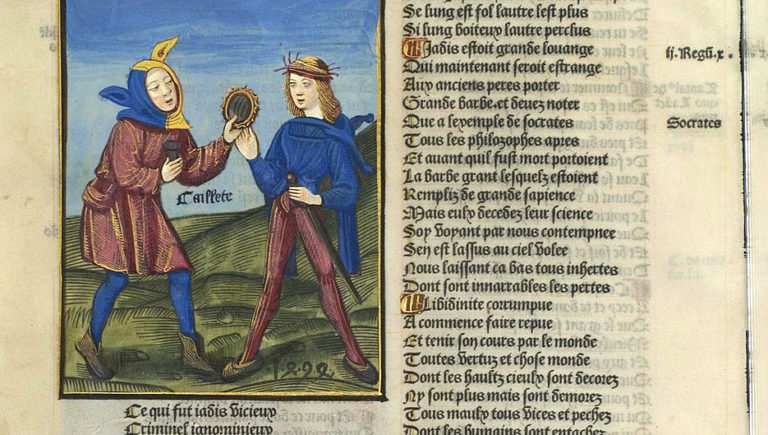 Caillete
Ce qui fut iadis vicieux
Criminel ignominieux
Se lung est fol lautre lest plus
Si lung boiteux lautre perclus
¶ Iadis estoit grande louange
Qui maintenant seroit estrange
Aux anciens peres porter
Grande barbe. et deuez noter
Que a lexemple de socrates
Tous les philozophes apres
Et auant quil fust mort portoient
La barbe grant lesquelz estoient
Rempliz de grande sapience
Mais eulx decedez leur science
Soy voyant par nous contempnee
Sen est lassus au ciel volee
Nous laissant ca bas tous inhertes
Dont sont innarrables les pertes
¶ Libidinite corrumpue
A commence faire repue
Et tenir son cours par le monde
Toutes vertuz et chose monde
Dont les haultz cieulx sont decorez
Ny sont plus mais sont demorez
Tous maulx tous vices et pechez
Dont les humains sont entachez
ij. Regũ. x.
Socrates